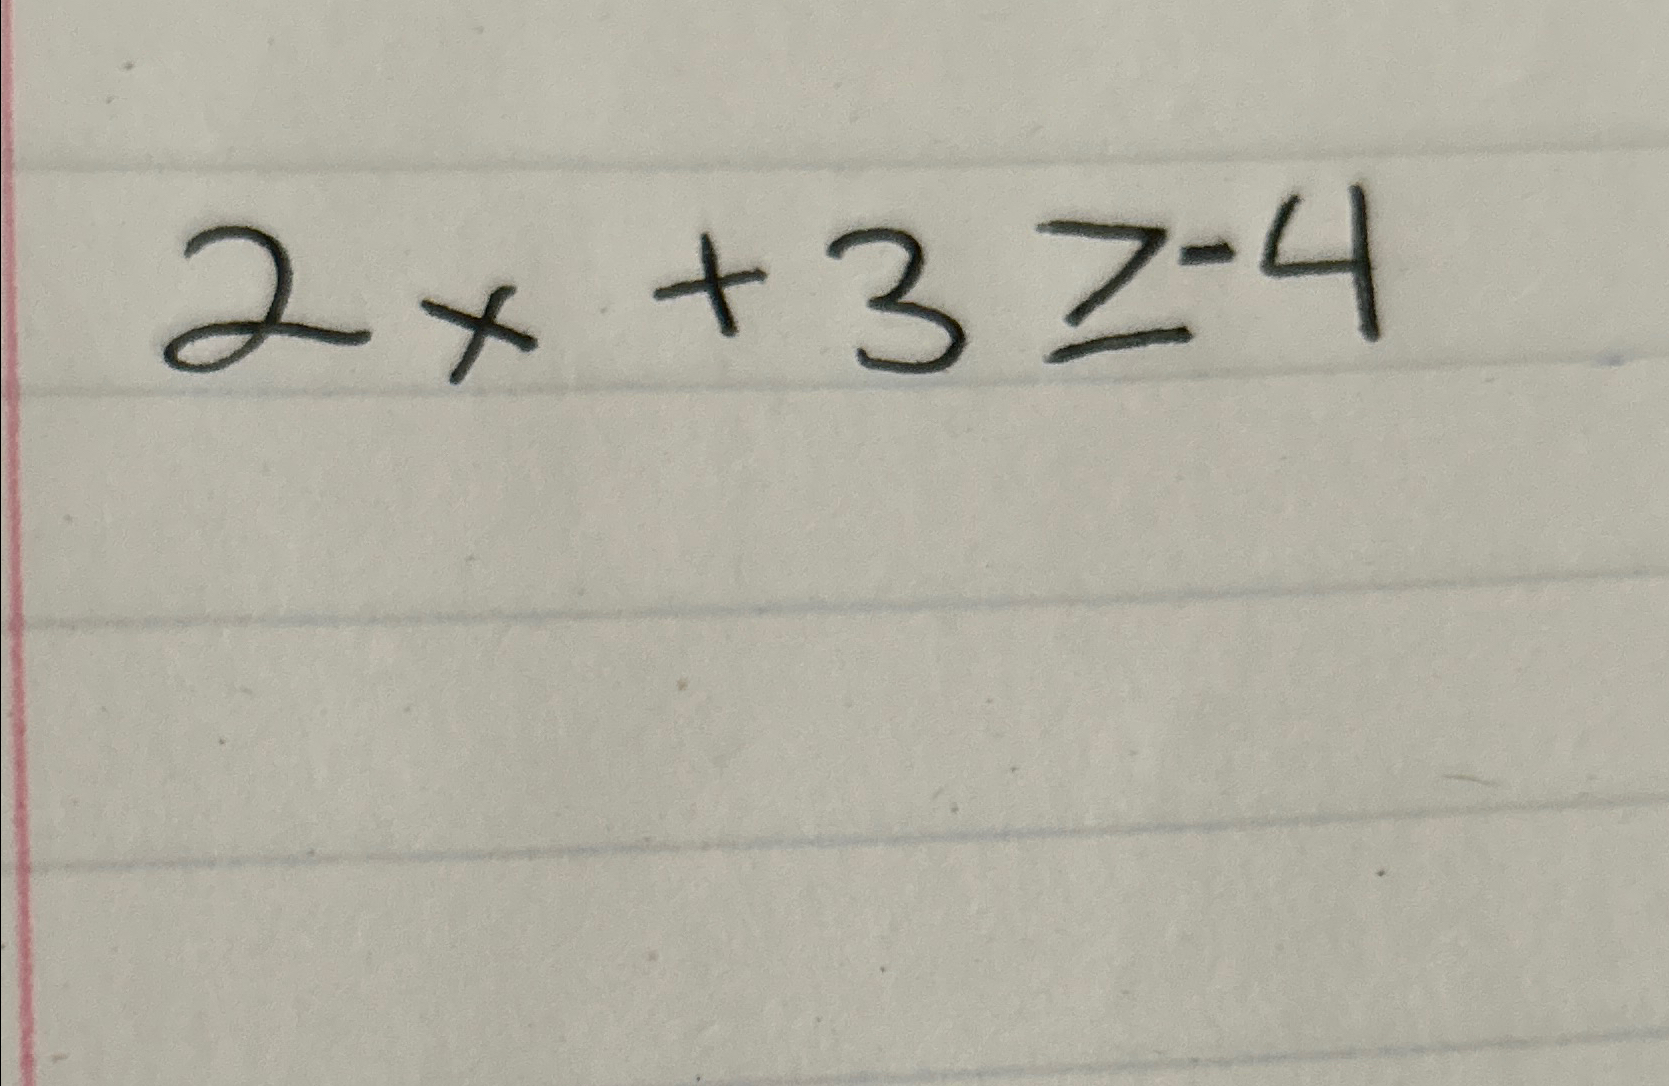 2x + 3 ≥ -4